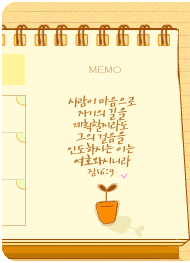 MEMO
사람이 마음으로
자기의 길을
계획할지라도
그의 걸음을
인도하시는 이는
여호와시니라
잠16:9